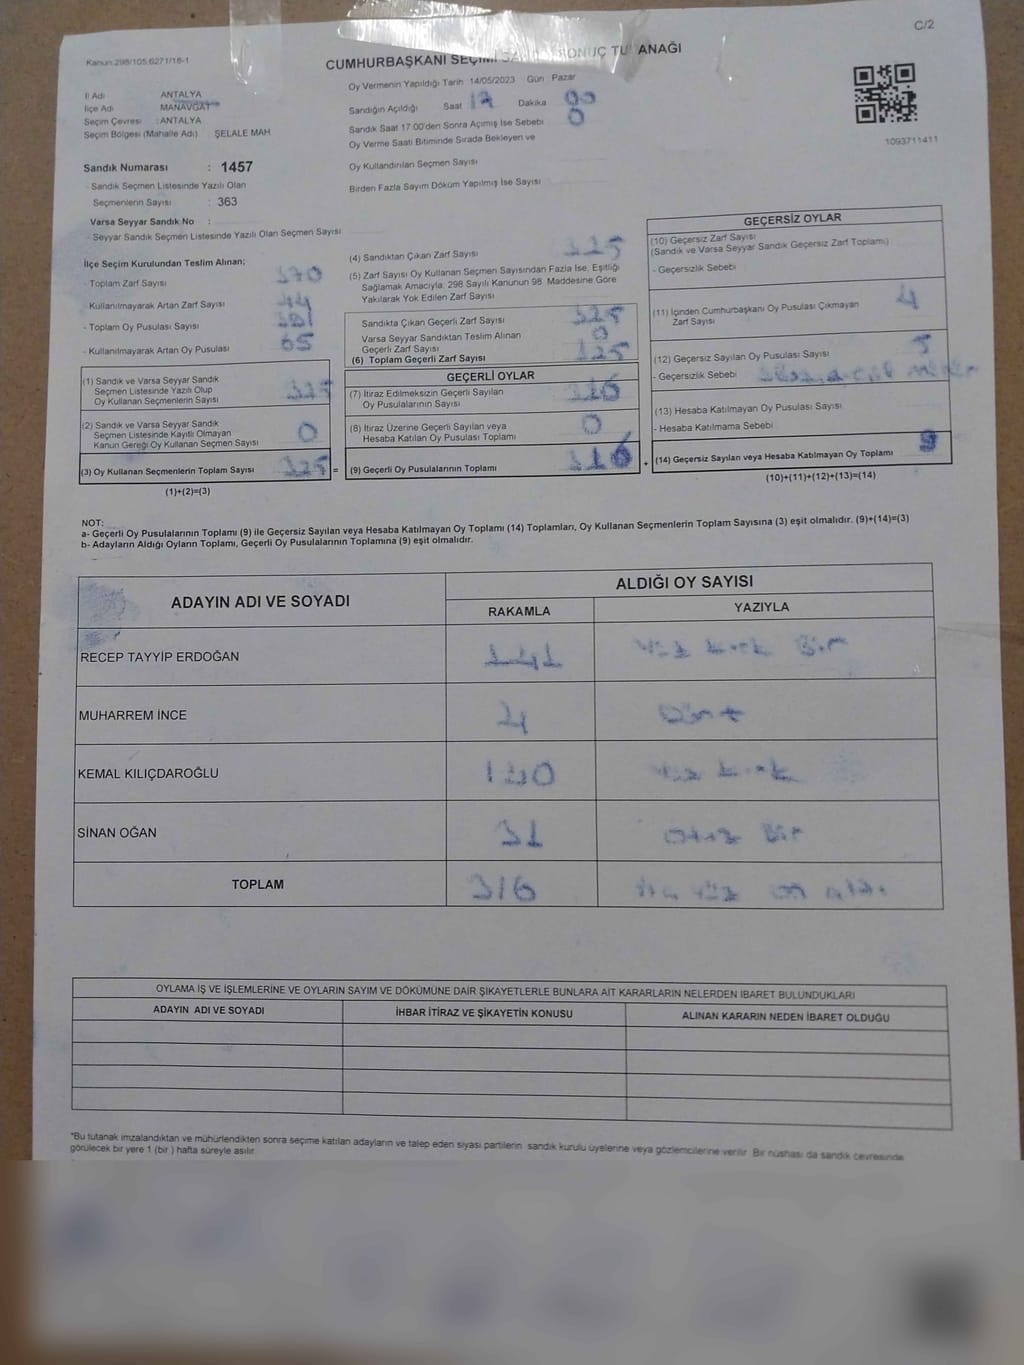 C/2
Kanun:298/105.6271/16-1
CUMHURBAŞKANI SEÇİMİ SONUÇ TUTANAĞI
İl Adı ANTALYA
İlçe Adı MANAVGAT
Seçim Çevresi : ANTALYA
Seçim Bölgesi (Mahalle Adı) ŞELALE MAH
Oy Vermenin Yapıldığı Tarih 14/05/2023 Gün Pazar
Sandığın Açıldığı Saat 17 Dakika 00
Sandık Saat 17:00'den Sonra Açımış İse Sebebi 0
Oy Verme Saati Bitiminde Sırada Bekleyen ve
Oy Kullandırılan Seçmen Sayısı
Birden Fazla Sayım Döküm Yapılmış İse Sayısı
1093711411
Sandık Numarası : 1457
- Sandık Seçmen Listesinde Yazılı Olan
Seçmenlerin Sayısı : 363
Varsa Seyyar Sandık No :
- Seyyar Sandık Seçmen Listesinde Yazılı Olan Seçmen Sayısı
İlçe Seçim Kurulundan Teslim Alınan;
- Toplam Zarf Sayısı 370
- Kullanılmayarak Artan Zarf Sayısı
- Toplam Oy Pusulası Sayısı
- Kullanılmayarak Artan Oy Pusulası 65
(1) Sandık ve Varsa Seyyar Sandık
Seçmen Listesinde Yazılı Olup
Oy Kullanan Seçmenlerin Sayısı 325
(2) Sandık ve Varsa Seyyar Sandık
Seçmen Listesinde Kayıtlı Olmayan
Kanun Gereği Oy Kullanan Seçmen Sayısı 0
(3) Oy Kullanan Seçmenlerin Toplam Sayısı 325 =
(1)+(2)=(3)
(4) Sandıktan Çıkan Zarf Sayısı 325
(5) Zarf Sayısı Oy Kullanan Seçmen Sayısından Fazla İse, Eşitliği
Sağlamak Amacıyla, 298 Sayılı Kanunun 98. Maddesine Göre
Yakılarak Yok Edilen Zarf Sayısı
Sandıkta Çıkan Geçerli Zarf Sayısı 325
Varsa Seyyar Sandıktan Teslim Alınan
Geçerli Zarf Sayısı 0
(6) Toplam Geçerli Zarf Sayısı 325
GEÇERLİ OYLAR
(7) İtiraz Edilmeksizin Geçerli Sayılan
Oy Pusulalarının Sayısı 316
(8) İtiraz Üzerine Geçerli Sayılan veya
Hesaba Katılan Oy Pusulası Toplamı 0
(9) Geçerli Oy Pusulalarının Toplamı 316 +
GEÇERSİZ OYLAR
(10) Geçersiz Zarf Sayısı
(Sandık ve Varsa Seyyar Sandık Geçersiz Zarf Toplamı)
- Geçersizlik Sebebi
(11) İçinden Cumhurbaşkanı Oy Pusulası Çıkmayan
Zarf Sayısı 4
(12) Geçersiz Sayılan Oy Pusulası Sayısı 5
- Geçersizlik Sebebi
(13) Hesaba Katılmayan Oy Pusulası Sayısı
- Hesaba Katılmama Sebebi
(14) Geçersiz Sayılan veya Hesaba Katılmayan Oy Toplamı 9
(10)+(11)+(12)+(13)=(14)
NOT:
a- Geçerli Oy Pusulalarının Toplamı (9) ile Geçersiz Sayılan veya Hesaba Katılmayan Oy Toplamı (14) Toplamları, Oy Kullanan Seçmenlerin Toplam Sayısına (3) eşit olmalıdır. (9)+(14)=(3)
b- Adayların Aldığı Oyların Toplamı, Geçerli Oy Pusulalarının Toplamına (9) eşit olmalıdır.
ADAYIN ADI VE SOYADI ALDIĞI OY SAYISI
RAKAMLA YAZIYLA
RECEP TAYYİP ERDOĞAN 141 Yüz kırk Bir
MUHARREM İNCE 4 Dört
KEMAL KILIÇDAROĞLU 140 Yüz kırk
SİNAN OĞAN 31 Otuz Bir
TOPLAM 316 Üç yüz on altı
OYLAMA İŞ VE İŞLEMLERİNE VE OYLARIN SAYIM VE DÖKÜMÜNE DAİR ŞİKAYETLERLE BUNLARA AİT KARARLARIN NELERDEN İBARET BULUNDUKLARI
ADAYIN ADI VE SOYADI İHBAR İTİRAZ VE ŞİKAYETİN KONUSU ALINAN KARARIN NEDEN İBARET OLDUĞU
*Bu tutanak imzalandıktan ve mühürlendikten sonra seçime katılan adayların ve talep eden siyasi partilerin sandık kurulu üyelerine veya gözlemcilerine verilir. Bir nüshası da sandık çevresinde
görülecek bir yere 1 (bir ) hafta süreyle asılır.